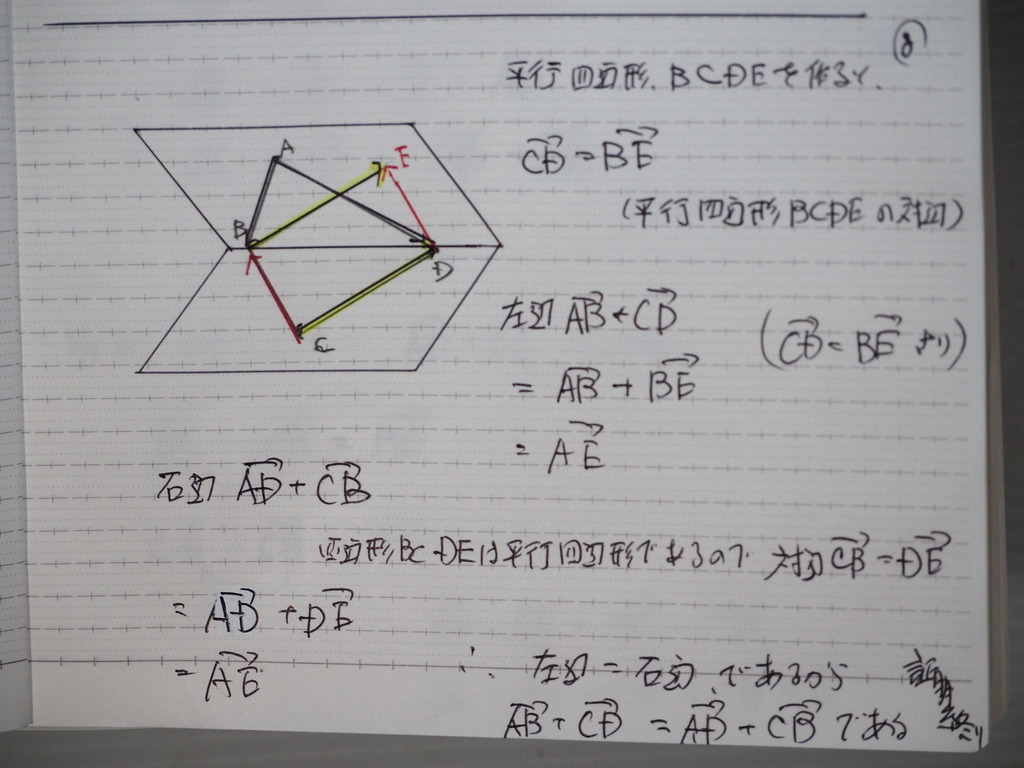 ⑧
平行四辺形、BCDEを作ると、
A
E
B
D
C
CD = BE
(平行四辺形BCDEの対辺)
左辺 AB + CD
(CD = BE より)
= AB + BE
= AE
右辺 AD + CB
四辺形BCDEは平行四辺形であるので 対辺CB = DE
= AD + DE
= AE
∴ 左辺 = 右辺、であるから
証明終り
AB + CD = AD + CB である